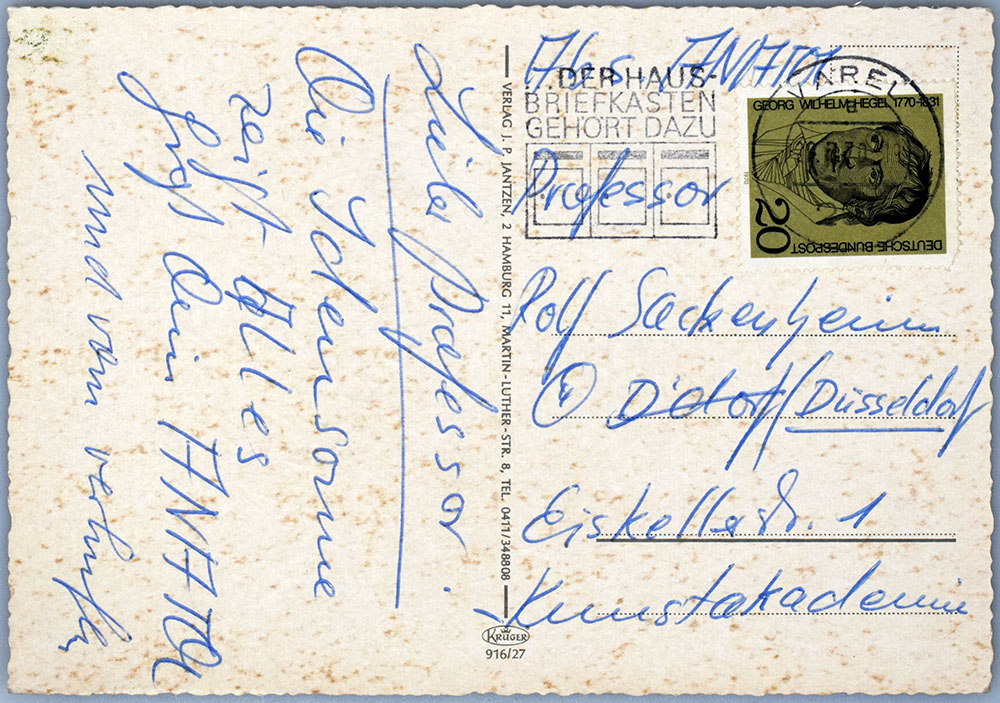 Lieber Professor.
Die Ichensonne
reift Alles
sagt Dein ANATOL
und vom
VERLAG J. P. JANTZEN, 2 HAMBURG 11, MARTIN-LUTHER-STR. 8, TEL. 0411/348808
KRÜGER
916/27
Abs. ANATOL
...DER HAUS-
BRIEFKASTEN
GEHÖRT DAZU
VAREL
GEORG WILHELM HEGEL 1770-1831
1970
20
DEUTSCHE BUNDESPOST
Professor
Rolf Sackenheim
Düsseldorf
Eiskellerstr. 1
Kunstakademie